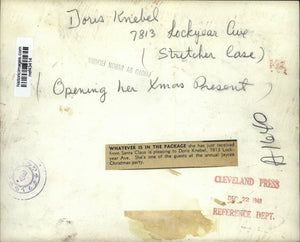 Doris Knebel
7813 Lockyear Ave
( Stretcher Case )
( Opening her Xmas Present )
historicimages.com
A1640
WHATEVER IS IN THE PACKAGE she has just received
from Santa Claus is pleasing to Doris Knebel, 7813 Lock-
year Ave. She's one of the guests at the annual Jaycee
Christmas party.
CLEVELAND PRESS
DEC 22 1948
REFERENCE DEPT.